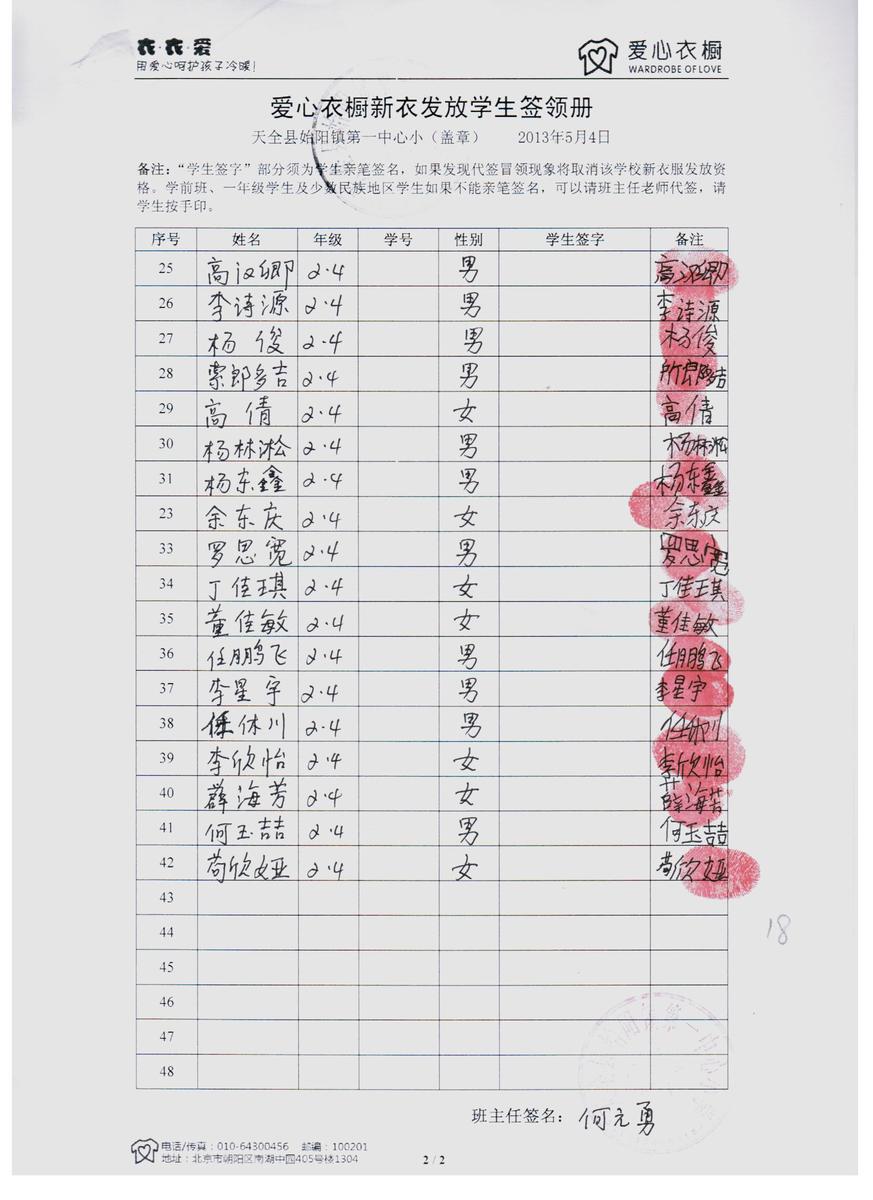 衣·衣·爱
用爱心呵护孩子冷暖!
爱心衣橱
WARDROBE OF LOVE
爱心衣橱新衣发放学生签领册
天全县始阳镇第一中心小（盖章） 2013年5月4日
备注：“学生签字”部分须为学生亲笔签名，如果发现代签冒领现象将取消该学校新衣服发放资
格。学前班、一年级学生及少数民族地区学生如果不能亲笔签名，可以请班主任老师代签，请
学生按手印。
序号 姓名 年级 学号 性别 学生签字 备注
25 高汉卿 2·4 男 高汉卿
26 李诗源 2·4 男 李诗源
27 杨俊 2·4 男 杨俊
28 索郎多吉 2·4 男 所郎多吉
29 高倩 2·4 女 高倩
30 杨林淞 2·4 男 杨林淞
31 杨东鑫 2·4 男 杨东鑫
23 余东庆 2·4 女 余东庆
33 罗思宽 2·4 男 罗思宽
34 丁佳琪 2·4 女 丁佳琪
35 董佳敏 2·4 女 董佳敏
36 任鹏飞 2·4 男 任鹏飞
37 李星宇 2·4 男 李星宇
38 任休川 2·4 男 任休川
39 李欣怡 2·4 女 李欣怡
40 薛海芳 2·4 女 薛海芳
41 何玉喆 2·4 男 何玉喆
42 苟欣娅 2·4 女 苟欣娅
43
44
18
45
46
47
48
班主任签名：何元勇
电话/传真：010-64300456 邮编：100201
地址：北京市朝阳区南湖中园405号楼1304
2 / 2